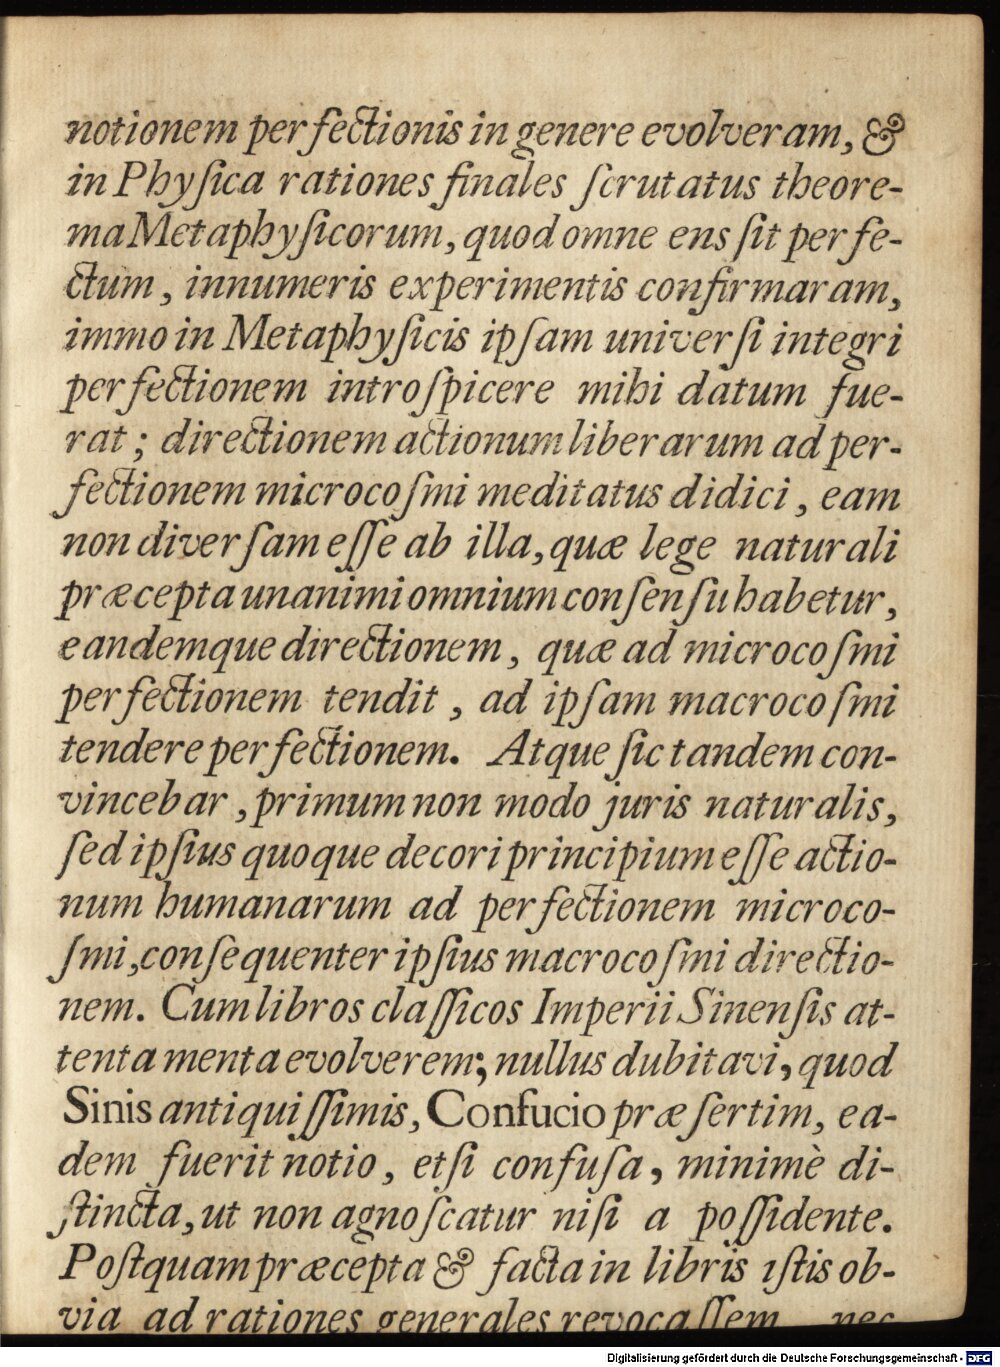 notionem perfectionis in genere evolveram, &
in Phyſica rationes finales ſcrutatus theore-
ma Metaphyſicorum, quod omne ens ſit perfe-
ctum, innumeris experimentis confirmaram,
immo in Metaphyſicis ipſam univerſi integri
perfectionem introſpicere mihi datum fue-
rat; directionem actionum liberarum ad per-
fectionem microcoſmi meditatus didici, eam
non diverſam eſſe ab illa, quæ lege naturali
præcepta unanimi omnium conſenſu habetur,
eandemque directionem, quæ ad microcoſmi
perfectionem tendit, ad ipſam macrocoſmi
tendere perfectionem. Atque ſic tandem con-
vincebar, primum non modo juris naturalis,
ſed ipſius quoque decori principium eſſe actio-
num humanarum ad perfectionem microco-
ſmi, conſequenter ipſius macrocoſmi directio-
nem. Cum libros claſſicos Imperii Sinenſis at-
tenta menta evolverem; nullus dubitavi, quod
Sinis antiquiſſimis, Confucio præſertim, ea-
dem fuerit notio, etſi confuſa, minimè di-
ſtincta, ut non agnoſcatur niſi a poſſidente.
Poſtquam præcepta & facta in libris iſtis ob-
via ad rationes generales revocaſſem nec
Digitalisierung gefördert durch die Deutsche Forschungsgemeinschaft - DFG